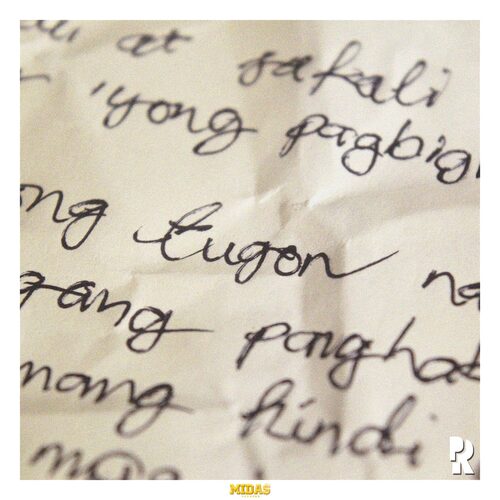 at sakali
'yong pagbig
ong tugon na
gang panghab
nang hindi
MIDAS
RECORDS
PR